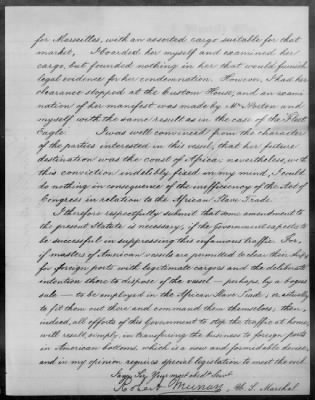 for Marseilles, with an assorted cargo suitable for that
market, I boarded her myself and examined her
cargo, but founded nothing in her that would furnish
legal evidence for her condemnation. However, I had her
clearance stopped at the Custom House, and an exami
nation of her manifest was made by Mr Horton and
myself with the same result as in the case of the Fleet
Eagle. I was well convinced from the character
of the parties interested in this vessel, that her future
destination was the coast of Africa, nevertheless, with
this conviction indelibly fixed in my mind, I could
do nothing in consequence of the inefficiency of the Act of
Congress in relation to the African Slave Trade.
I therefore respectfully submit that some amendment to
the present Statute is necessary, if the Government expects to
be successful in suppressing this infamous traffic. For,
if masters of American vessels are permitted to clear their ships
for foreign ports with legitimate cargoes and the deliberate
intention there to dispose of the vessel — perhaps by a bogus
sale — to be employed in the African Slave Trade, or actually
to fit them out there and command them themselves, then,
indeed, all efforts of this Government to stop the traffic at home,
will result, simply, in transferring the business to foreign ports
in American bottoms, which is a new and formidable device,
and in my opinion requires special legislation to meet the evil.
I am, Sir, Your most obdt Servt
Robert Murray, U. S. Marshal